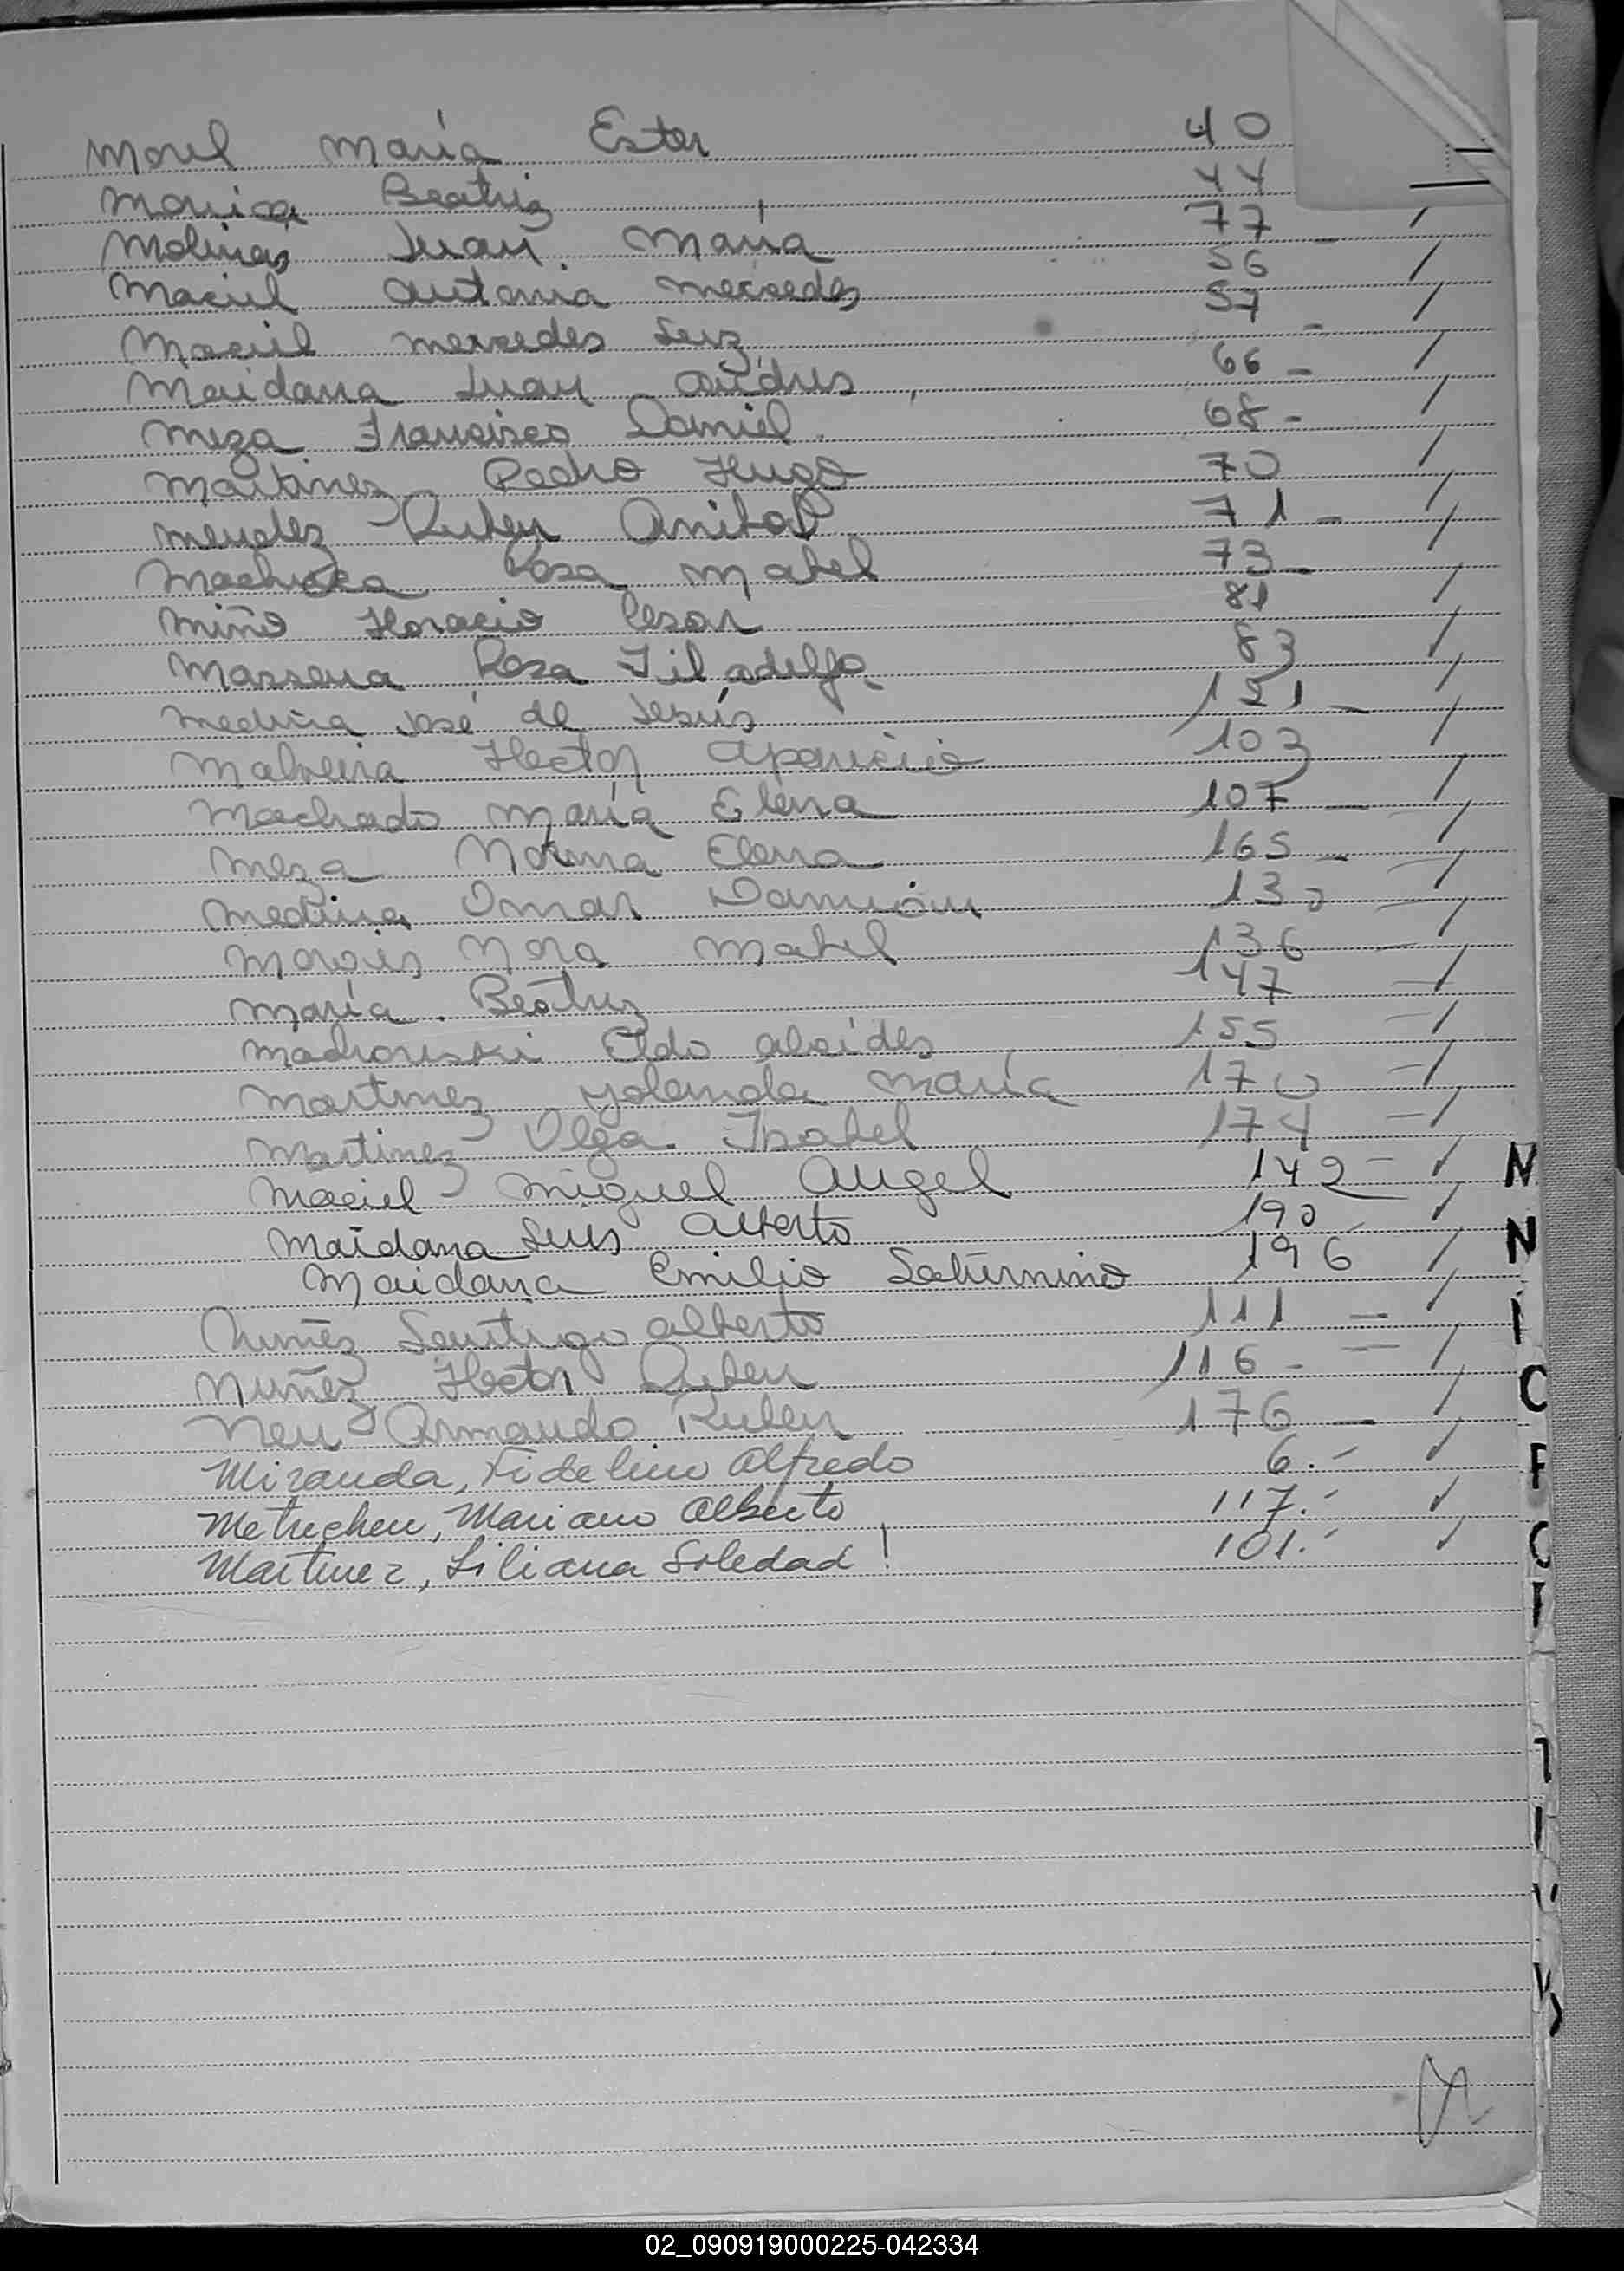 Morel María Ester 40
Monica Beatriz 44
Molinas Juan María 77 -
Maciel Antonia Mercedes 56
Maciel Mercedes Luz 57 -
Maidana Juan Andres 66 -
Meza Francisco Daniel 68 -
Martinez Pedro Hugo 70
Mendez Ruben Anibal 71 -
Machuca Rosa Mabel 73 -
Miño Horacio Cesar 81
Massena Rosa Filadelfa 83
Medina José de Jesús 121 -
Malveira Hector Aparicio 103
Machado María Elena 107 -
Meza Norma Elena 165 -
Medina Omar Damián 130
Nora Mabel 136
María Beatriz 147
Eldo Alcides 155
Martinez Yolanda María 170
Martinez Olga Isabel 174
Maciel Miguel Angel 142 -
Maidana Luis Alberto 190
Maidana Emilio Saturnino 196
Nuñez Santiago Alberto 111 -
Nuñez Hector Ruben 116 -
Neu Armando Ruben 176 -
Miranda, Fidelino Alfredo 6.-
Metrechen, Mariano Alberto 117.-
Martinez, Liliana Soledad ! 101.-
M
N
02_090919000225-042334